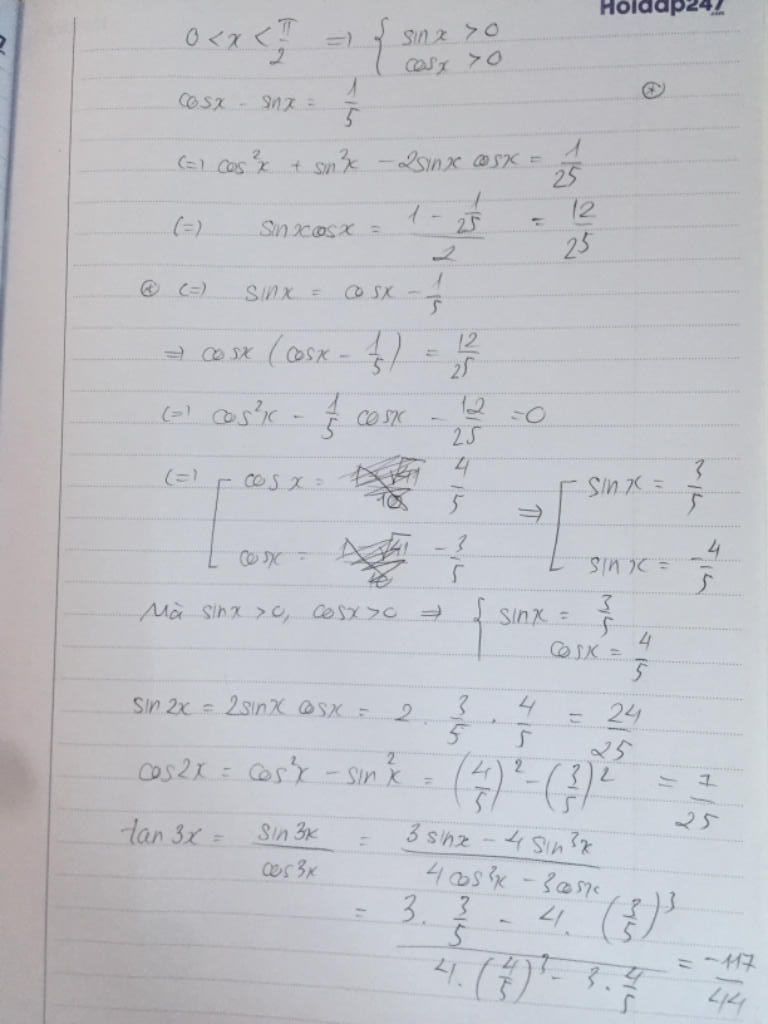 Hoidap247
0 < x < π/2 => { sinx > 0
cosx > 0
cosx - sinx = 1/5 (*)
(=) cos²x + sin²x - 2sinx cosx = 1/25
(=) sinxcosx = (1 - 1/25)/2 = 12/25
(*) (=) sinx = cosx - 1/5
=> cosx (cosx - 1/5) = 12/25
(=) cos²x - 1/5 cosx - 12/25 = 0
(=) [ cosx = 4/5 => [ sinx = 3/5
cosx = -3/5 sinx = -4/5
Mà sinx > 0, cosx > 0 => { sinx = 3/5
cosx = 4/5
sin2x = 2sinx cosx = 2 . 3/5 . 4/5 = 24/25
cos2x = cos²x - sin²x = (4/5)² - (3/5)² = 7/25
tan3x = sin3x/cos3x = (3sinx - 4sin³x)/(4cos³x - 3cosx)
= (3. 3/5 - 4. (3/5)³)/(4.(4/5)³ - 3. 4/5) = -117/44